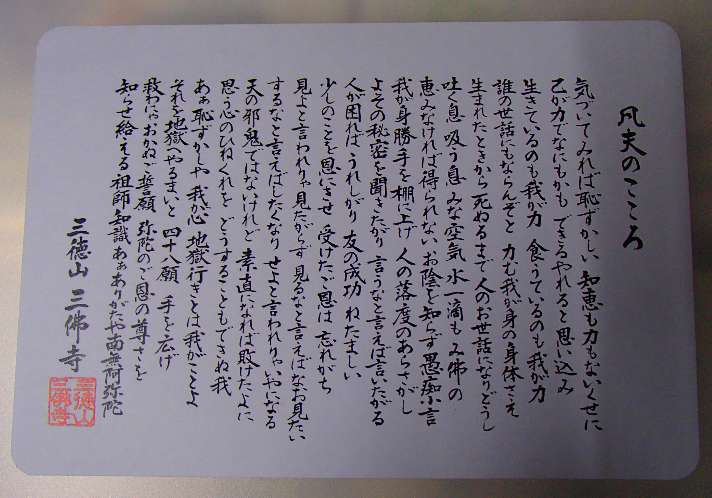 凡夫のこころ
気づいてみれば恥ずかしい 知恵も力もないくせに
己が力でなにもかも できるやれると思い込み
生きているのも我が力 食うているのも我が力
誰の世話にもならんぞと 力む我が身の身体さえ
生まれたときから死ぬるまで 人のお世話になりどうし
吐く息 吸う息 みな空気 水一滴も み佛の
恵みなければ得られない お陰を知らず 愚痴小言
我が身勝手を棚に上げ 人の落度のあらさがし
よその秘密を聞きたがり 言うなと言えば言いたがる
人が困れば うれしがり 友の成功 ねたましい
少しのことを恩にきせ 受けたご恩は 忘れがち
見よと言われりゃ見たがらず 見るなと言えばなお見たい
するなと言えばしたくなり せよと言われりゃいやになる
天の邪鬼ではないけれど 素直になれば敗けたよに
思う心のひねくれを どうすることもできぬ我
あぁ恥ずかしや 我が心 地獄行きとは我がことよ
それを地獄へやるまいと 四十八願 手を広げ
救わにゃおかぬご誓願 弥陀のご恩の尊さを
知らせ給える 祖師知識 あぁありがたや南無阿弥陀
三徳山 三佛寺
三徳山
三佛寺